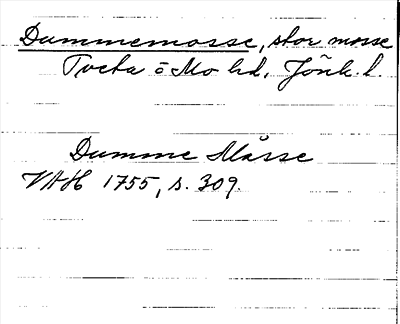 Dummemosse, stor mosse
Tveta o Mo hd, Jönk. l.
Dumme Måsse
VAH 1755, s. 309.